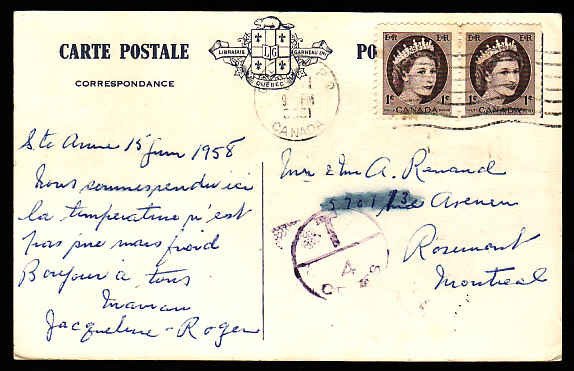 CARTE POSTALE
CORRESPONDANCE
LIBRAIRIE GARNEAU
LG
QUÉBEC
PO
E II R E II R
1¢ 1¢ 1¢ 1¢
CANADA CANADA
CANADA
Ste Anne 15 Juin 1958
Nous sommes rendu ici
la température n'est
pas pire mais froid
Bonjour à tous
Maman
Jacqueline - Roger
Mr & M A. Renaud
5701 13 Avenue
Rosemont
Montreal
T
4